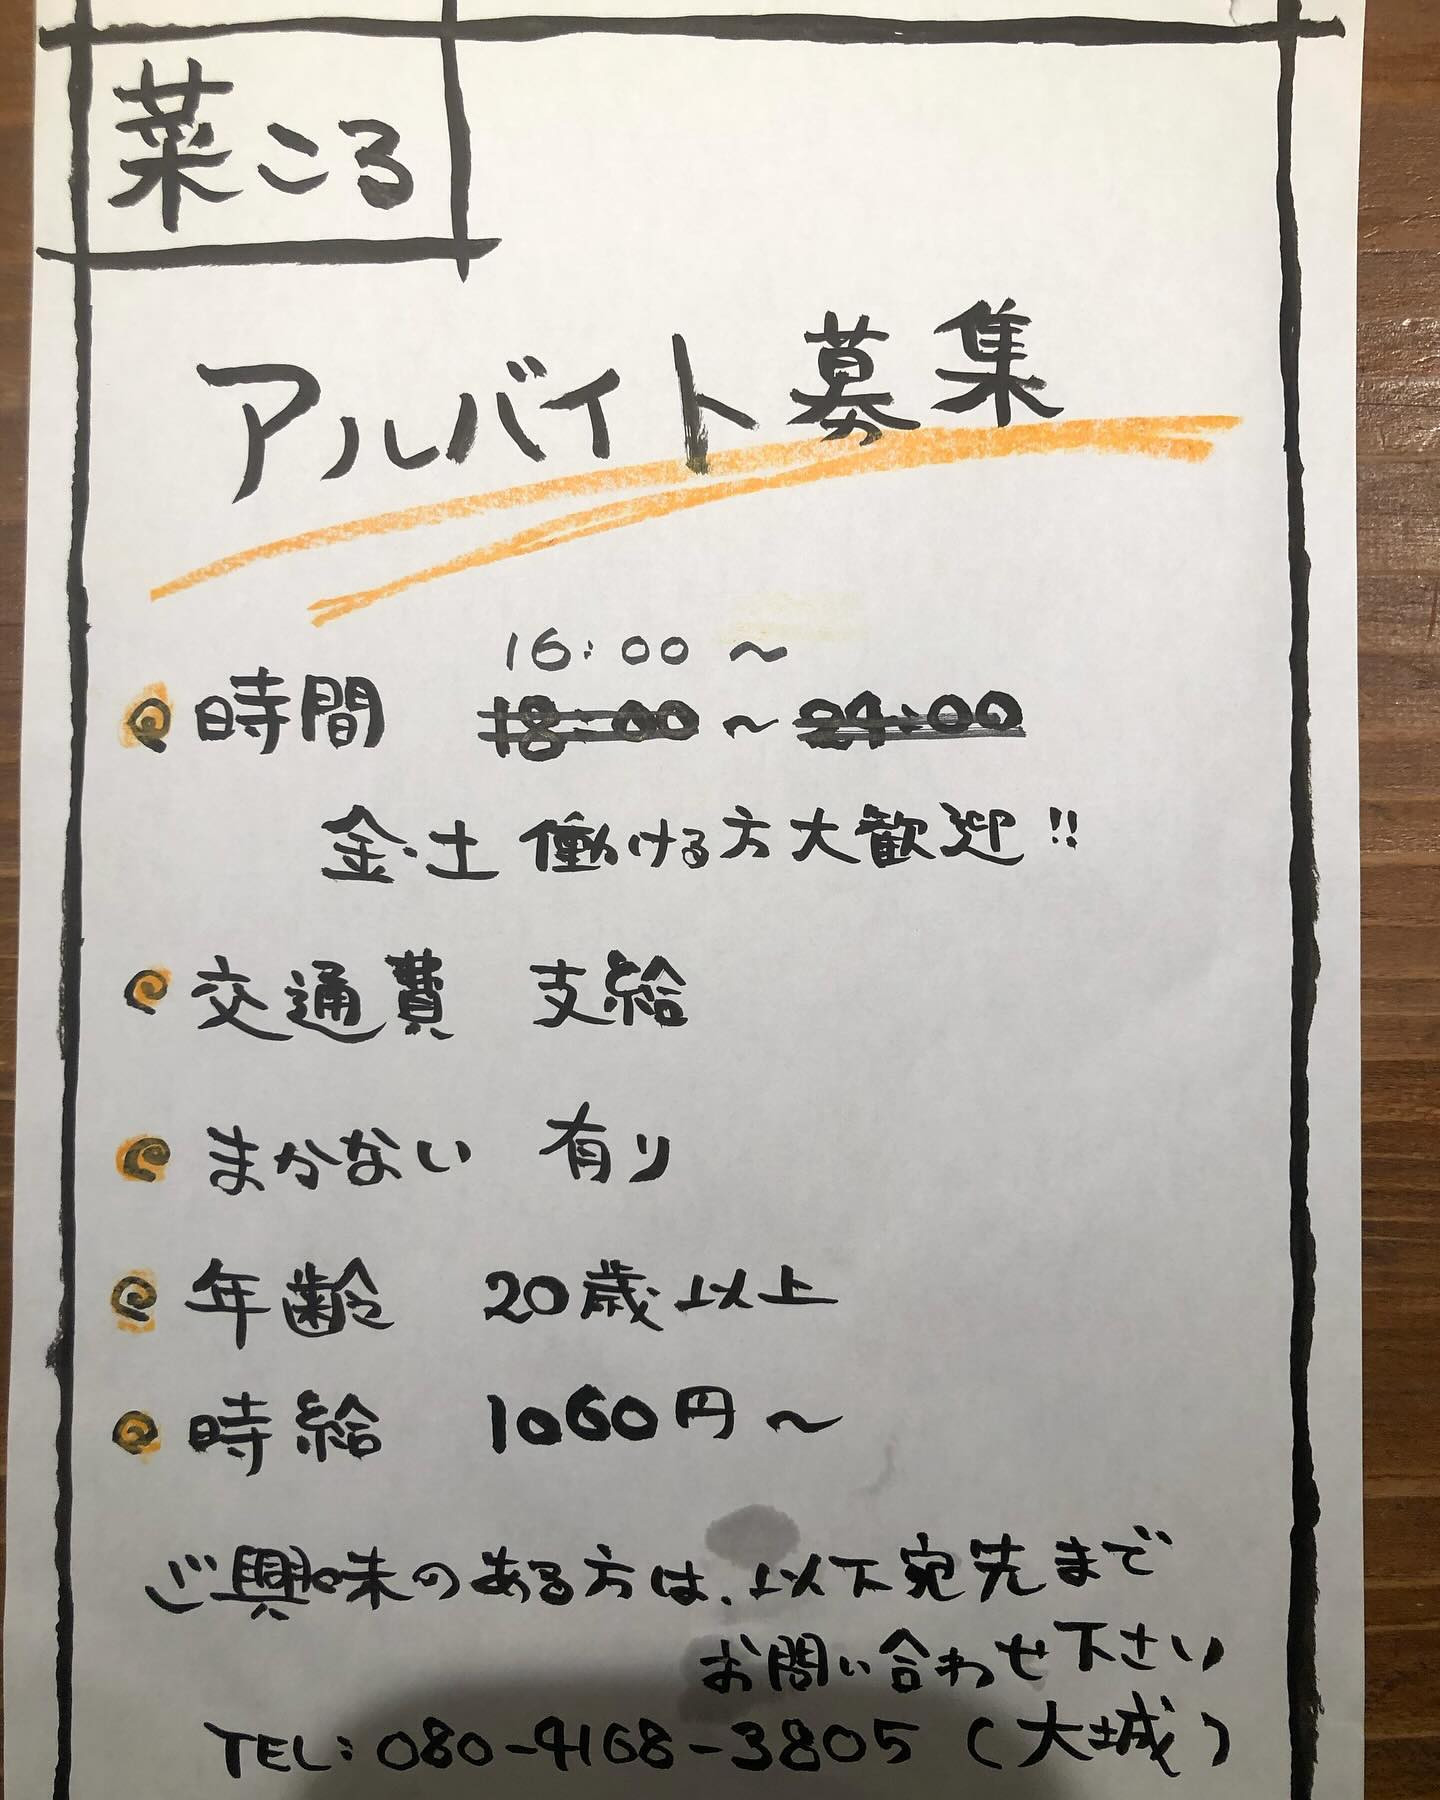 菜ころ
アルバイト募集
16:00 ～
時間 18:00 ～ 24:00
金・土 働ける方大歓迎!!
交通費 支給
まかない 有り
年齢 20歳以上
時給 1060円～
ご興味のある方は、以下宛先まで
お問い合わせ下さい
TEL:080-4168-3805(大城)